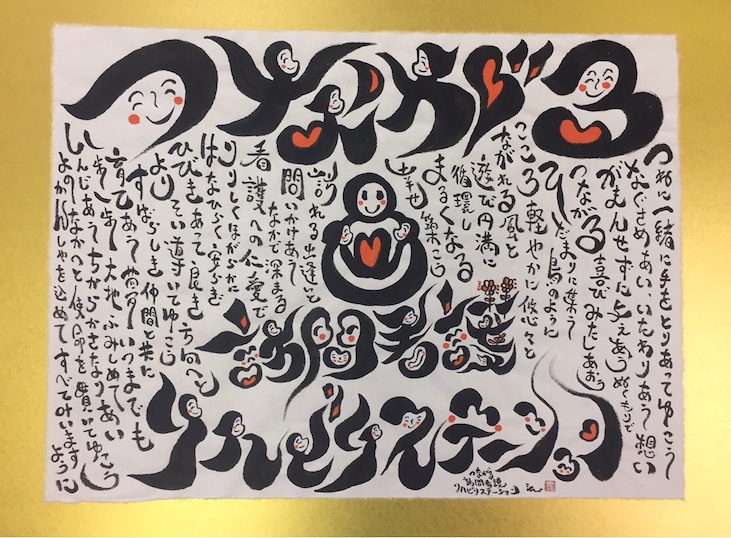 つながる
つねに一緒に手をとりあってゆこう
なぐさめあい、いたわりあう想い
がまんせずに与えあうぬくもりで
つながる喜びみたしあおう
ひだまりに集う鳥のように
こころ軽やかに悠々と
ながれる風と
遊び円満に
循環し
まるくなる
幸せ築こう
訪れる出逢いと
問いかけあう
なかで深まる
看護への仁愛で
りりしくほがらかに
はなひらく安らぎ
ひびきあって良き方向へと
よりそい導いてゆこう
すばらしき仲間と共に
育てあう夢いつまでも
一歩一歩大地ふみしめ
しんじあうちからかさなりあい
よのなかへと使命を貫いてゆこう
かんしゃを込めてすべて叶いますように
訪問看護
リハビリステーション
つながる
訪問看護
リハビリステーション